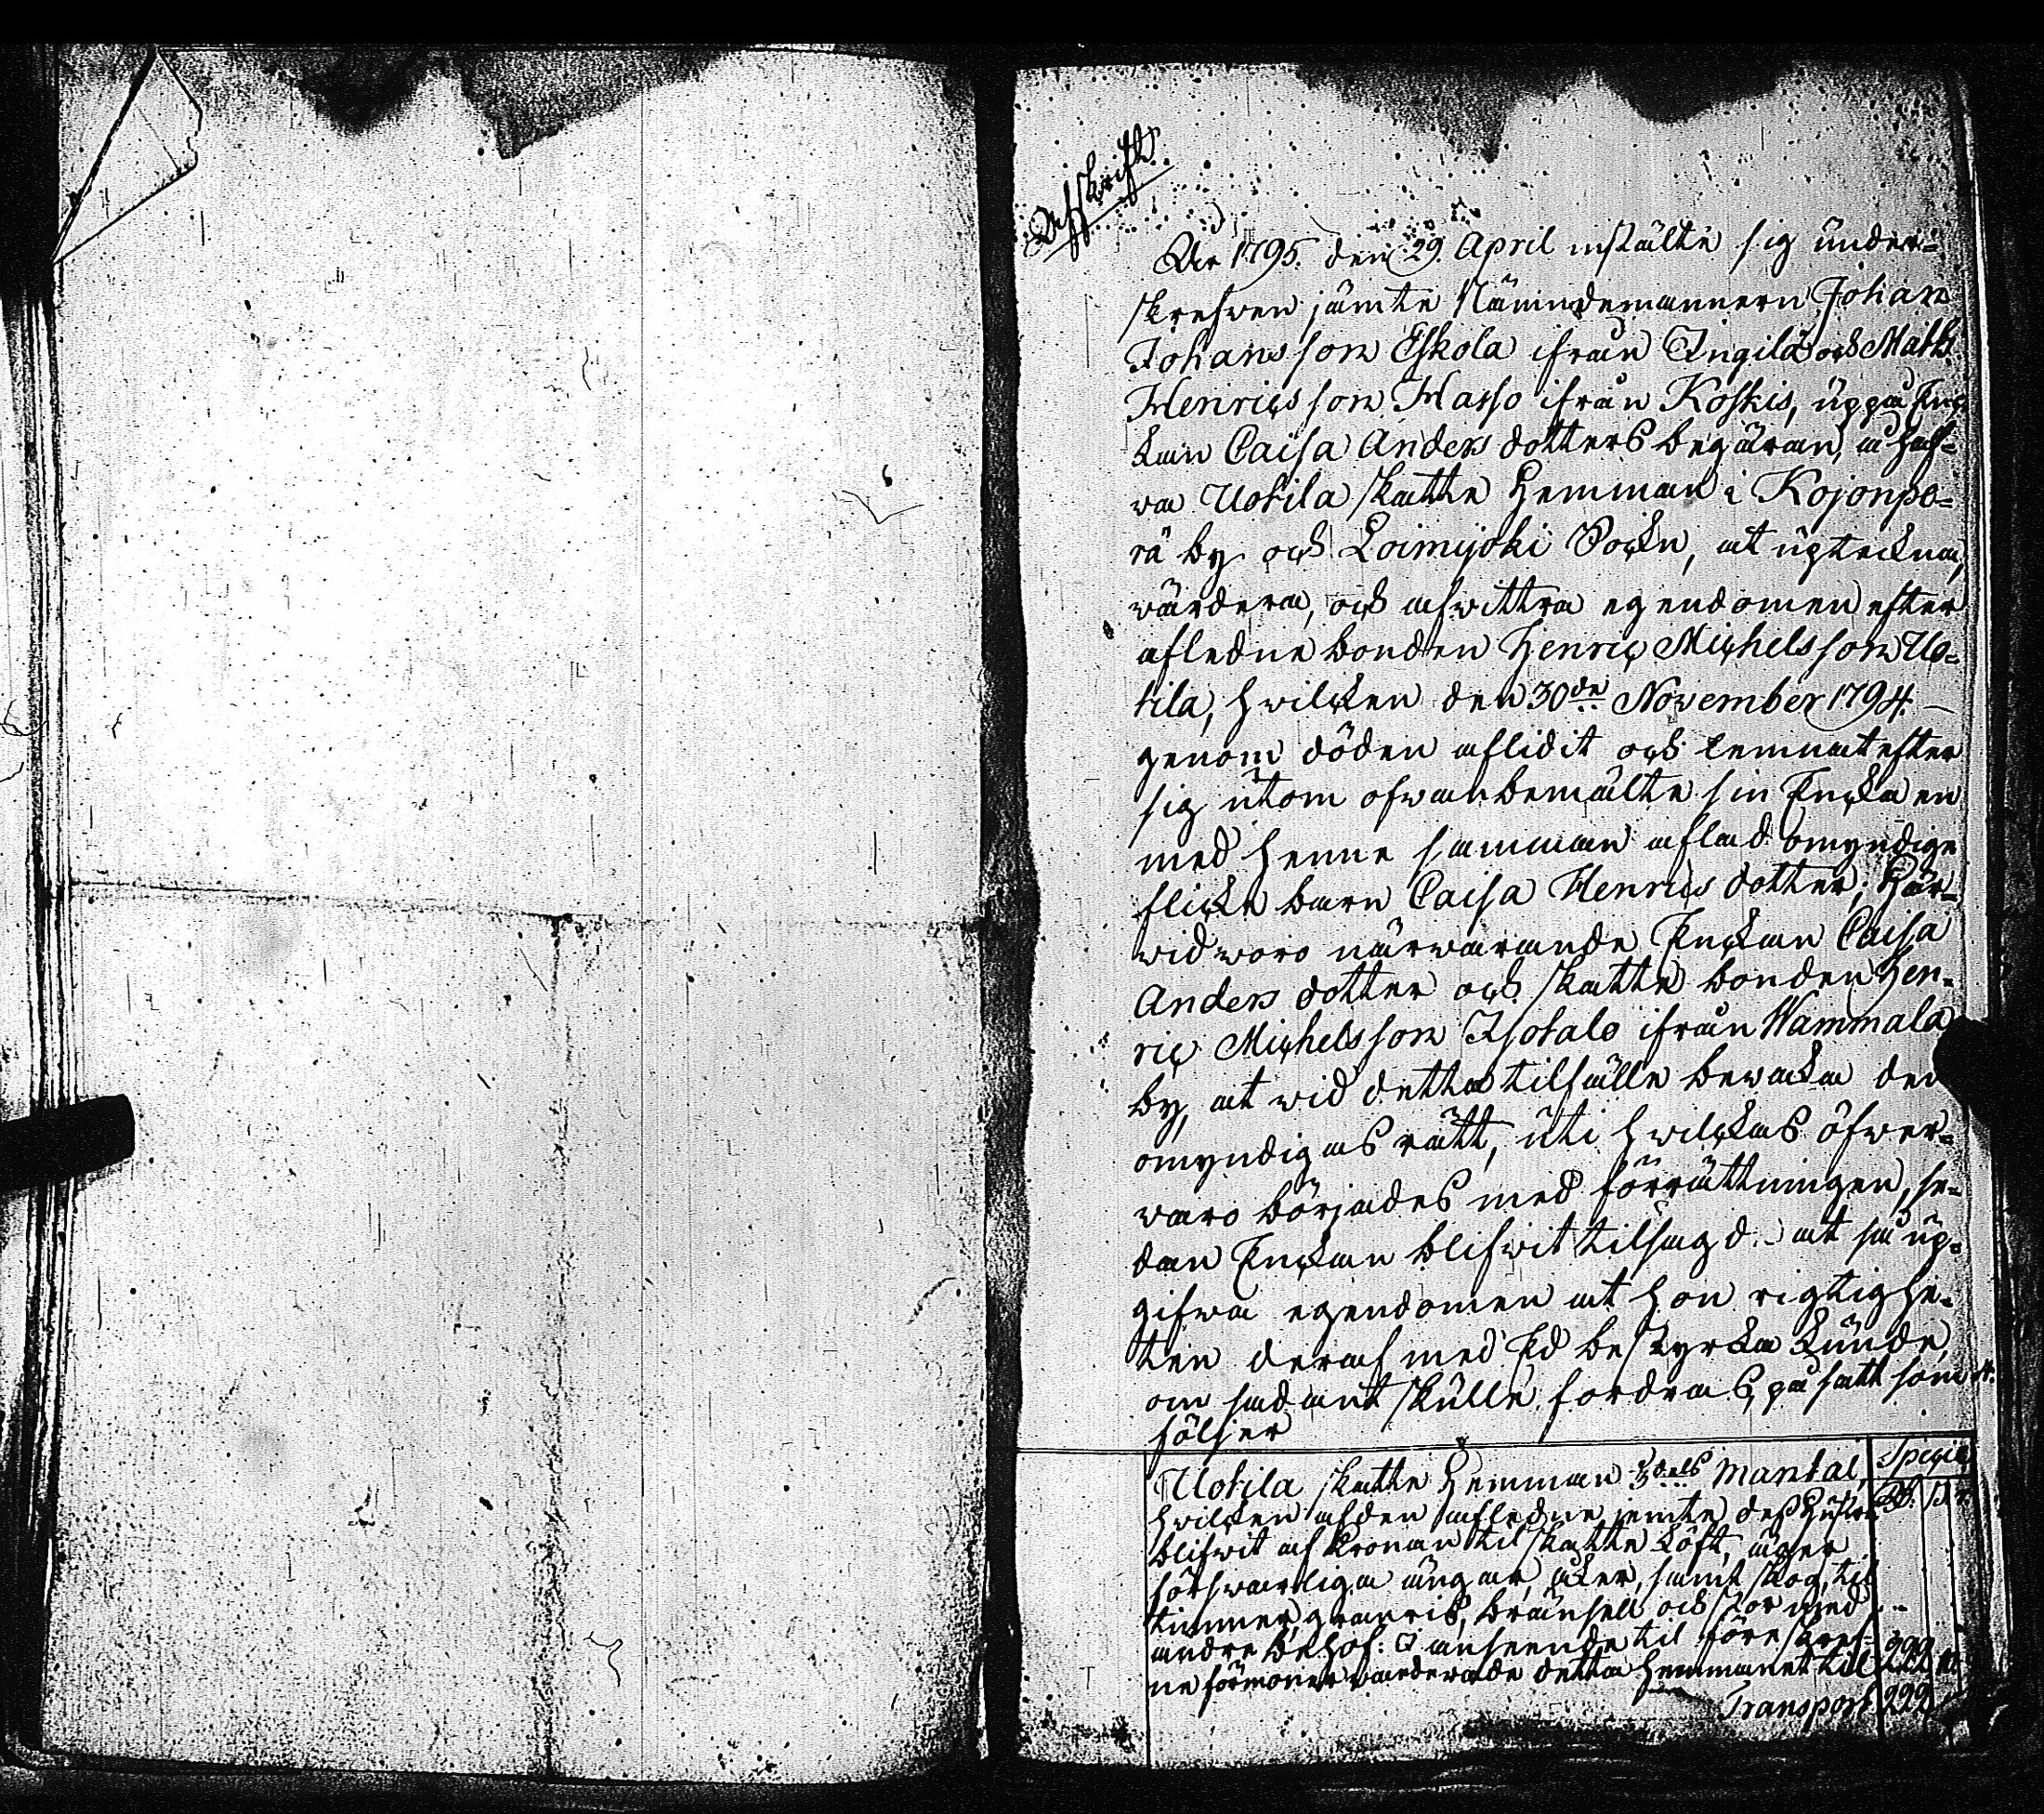 Afskrift
År 1795. den 29 April instälte sig under-
skrefwen jämte Nämndemännern Johan
Johansson Eskola ifrån Ingilä och Math:
Henricsson Harso ifrån Koskis, uppå Enc-
kan Caisa Anders dotters begäran, å haf-
wa Uotila skatte Hemman i Kojonpe-
rä by och Loimijoki Sockn, at upteckna,
wärdera, och afwittra egendomen efter
afledne bonden Henric Michelsson Uo-
tila, hwilcken den 30de November 1794.
genom döden aflidit och lemnat efter
sig utom ofwanbemälte sin Encka en
med henne samman aflad omyndige
flicke barn Caisa Henrics dotter; Här-
wid woro närwarande Enckan Caisa
Anders dotter och skatte bonden Hen-
ric Michelsson Isotalo ifrån Wammala
by, at wid detta tilfälle bewaka den
omyndigas rätt, uti hwilckas öfwer-
waro börjades med förrättningen, se-
dan Enckan blifwit tilsagd at så up-
gifwa egendomen at hon rigtighe-
ten deraf med Ed bestyrka kunde,
om sådant skulle fordras, på sätt som
följer
Uotila skatte Hemman dels mantal, Specie
hwilcken af den afledne jemte des hustru Rd. s. r.
blifwit af Kronan til skatte köft, äger
förswarliga ängar, åker, samt skog, til
timmer, granris, bränsell och stor med
andre behof: I anseende til föreskref-
ne förmoner warderade detta hemmanet til 222
Transport 222